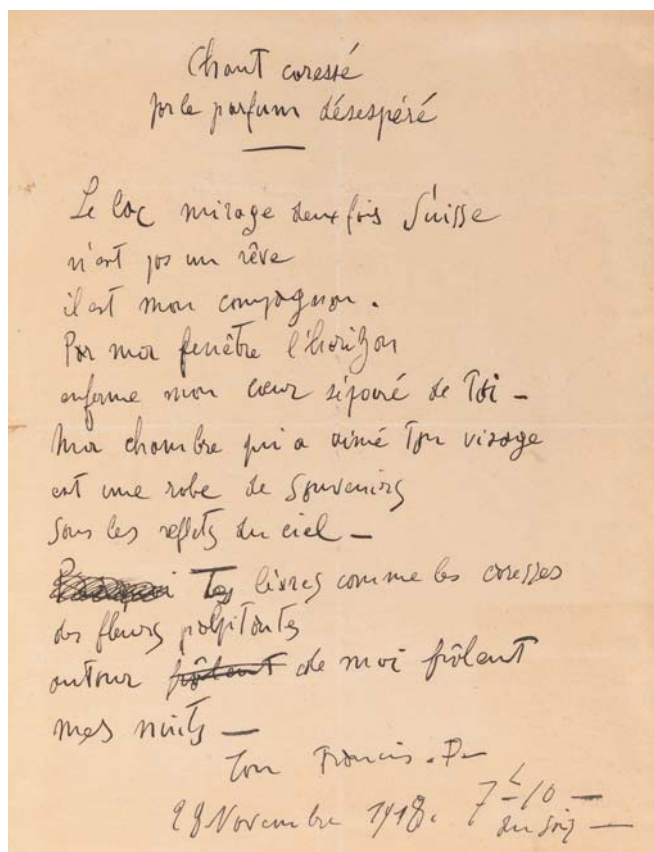 Chant caressé
par le parfum désespéré
Le lac mirage deux fois Suisse
n'est pas un rêve
il est mon compagnon.
Par ma fenêtre l'horizon
enferme mon cœur séparé de Toi —
Ma chambre qui a aimé Ton visage
est une robe de Souvenirs
Sous les reflets du ciel —
Tes lèvres comme les caresses
des fleurs palpitantes
autour frôlent de moi frôlent
mes nuits —
Ton Francis. P—
28 Novembre 1918. 7h-10 —
du soir —